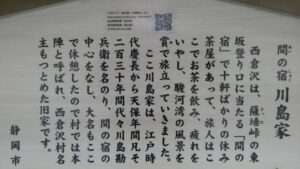 間の宿 川島家
西倉沢は、薩埵峠の東
坂登り口に当たる「間の
宿」で十軒ばかりの休み
茶屋があって、旅人はこ
こでお茶を飲み、疲れを
いやし、駿河湾の風景を
賞で旅立っていきました。
ここ川島家は、江戸時
代慶長から天保年間凡そ
二百三十年間代々川島勘
兵衛を名のり、間の宿の
中心をなし、大名もここ
で休憩したので村では本
陣と呼ばれ、西倉沢村名
主もつとめた旧家です。
静岡市